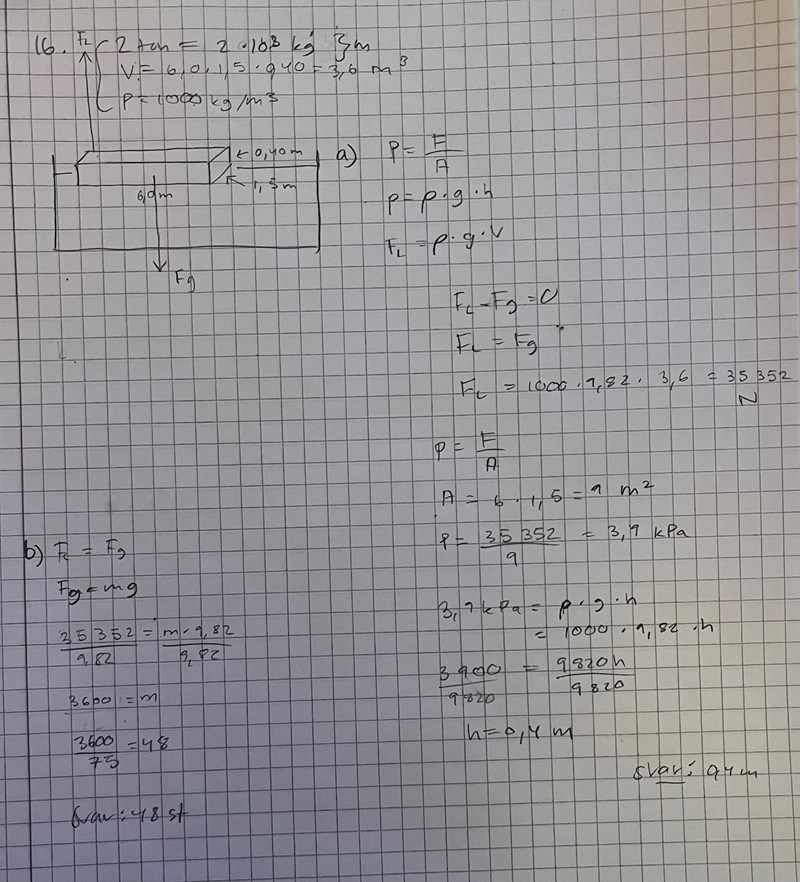 16. FL 2 ton = 2 · 10³ kg 3m
V = 6,0 · 1,5 · 0,40 = 3,6 m³
ρ = 1000 kg/m³
0,40m
1,5m
6,0m
Fg
a) P = F/A
p = ρ · g · h
FL = ρ · g · V
FL - Fg = 0
FL = Fg
FL = 1000 · 9,82 · 3,6 = 35 352 N
P = F/A
A = 6 · 1,5 = 9 m²
P = 35 352/9 = 3,9 kPa
3,9 kPa = ρ · g · h
= 1000 · 9,82 · h
3900/9820 = 9820h/9820
h = 0,4 m
Svar: 0,4 m
b) FL = Fg
Fg = mg
35352/9,82 = m · 9,82/9,82
3600 = m
3600/75 = 48
Svar: 48 st